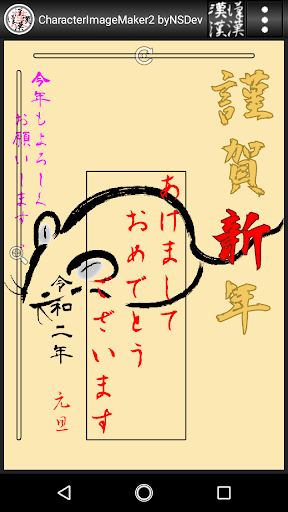 CharacterImageMaker2 byNSDev
漢漢
漢漢
謹賀新年
あけまして
おめでとう
ございます
今年もよろしく
お願いします
令和二年
元旦